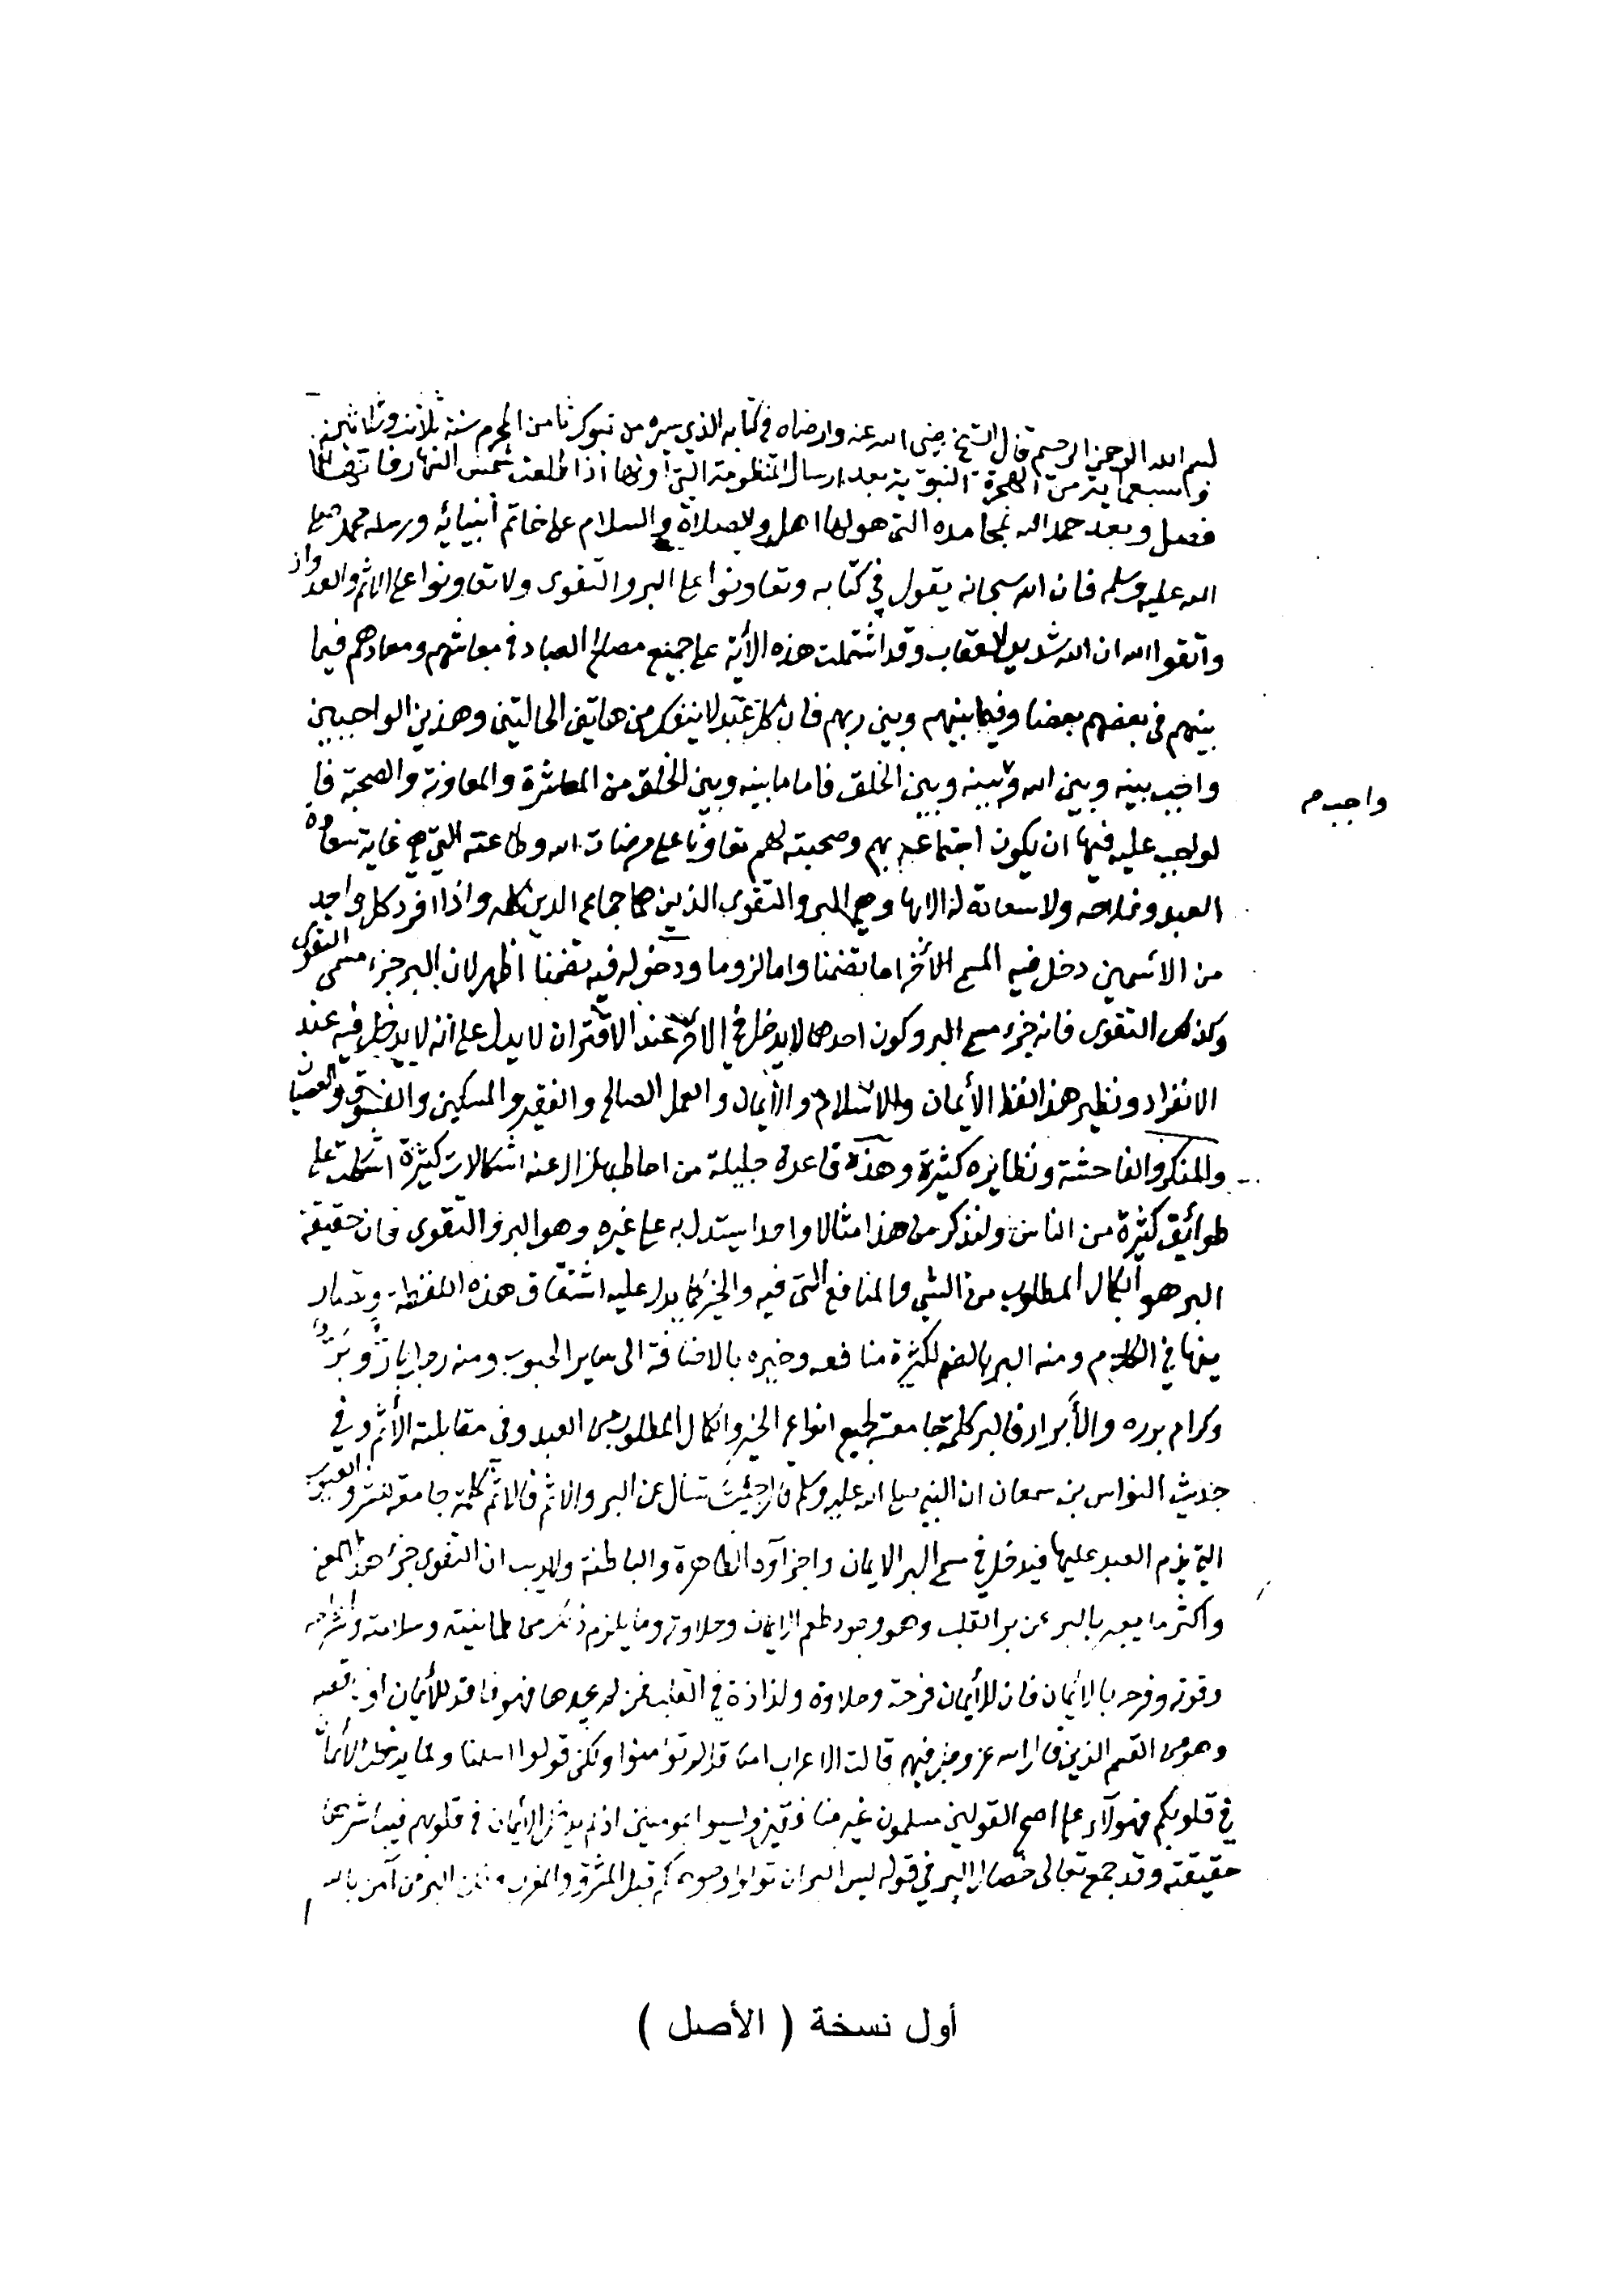 بسم الله الرحمن الرحيم قال الشيخ رضي الله عنه وارضاه في كتابه الذي سيره من تبوك ثامن المحرم سنة ثلاث وثلاثين
وسبعماية من الهجرة النبوية بعد ارسال المنظومة التي اولها اذا طلعت شمس النهار فانها
فصل وبعد حمد الله بمحامده التي هو لها اهل والصلاة والسلام على خاتم أنبيائه ورسله محمد صلى
الله عليه وسلم فان الله سبحانه يقول في كتابه وتعاونوا على البر والتقوى ولا تعاونوا على الاثم والعدوان
واتقوا الله ان الله شديد العقاب وقد اشتملت هذه الأية على جميع مصالح العباد في معاشهم ومعادهم فيما
بينهم في بعضهم بعضا وفيما بينهم وبين ربهم فان كل عبد لا ينفك من هاتين الحالتين وهذين الواجبين
واجب بينه وبين الله وبينه وبين الخلق فاما ما بينه وبين الخلق من المعاشرة والمعاونة والصحبة فا
واجب م
لواجب عليه فيها ان يكون اجتماعه بهم وصحبته لهم تعاونا على مرضات الله وطاعته التي هي غاية سعادة
العبد وفلاحه ولا سعادة له الا بها وهي البر والتقوى الذين هما جماع الدين كله واذا افرد كل واحد
من الاسمين دخل فيه المسمى الأخر اما تضمنا واما لزوما ودخوله فيه تضمنا اظهر لان البر جزء مسمى التقوى
وكذلك التقوى فانه جزء مسمى البر وكون احدهما لا يدخل في الاخر عند الاقتران لا يدل على انه لا يدخل فيه عند
الانفراد ونظير هذا لفظ الأيمان والاسلام والأيمان والعمل الصالح والفقير والمسكين والفسوق والعصيان
والمنكر والفاحشة ونظايره كثيرة وهذه قاعدة جليلة من احاط بها زال عنه اشكالات كثيرة اشكلت على
طوائق كثيرة من الناس ولنذكر من هذا مثالا واحدا يستدل به على غيره وهو البر والتقوى فان حقيقة
البر هو الكمال المطلوب من الشي والمنافع التي فيه والخير كما يدل عليه اشتقاق هذه اللفظة وتصاريـ
ـفها في الكلام ومنه البر بالضم لكثرة منافعه وخيره بالاضافة الى ساير الحبوب ومنه رجل بار وبر
وكرام برره والأبرار فالبر كلمة جامعة لجميع انواع الخير والكمال المطلوب من العبد وفي مقابلته الأثم وفي
حديث النواس بن سمعان ان النبي صلى الله عليه وسلم قال جئت تسال عن البر والاثم فالاثم كلمة جامعة للشر والعيوب
التي يذم العبد عليها فيدخل في مسمى البر الايمان واجزاؤه الظاهرة والباطنة ولا ريب ان التقوى جزء هذا المعنى
وأكثر ما يعبر بالبر عن بر القلب وهو وجود طعم الايمان وحلاوته وما يلزم ذلك من طمانينته وسلامته وانشراحه
وقوته وفرحه بالايمان فان للأيمان فرحة وحلاوة ولذاذة في القلب فمن لم يجدها فهو فاقد للأيمان او ناقصه
وهو من القسم الذين قال الله عز وجل فيهم قالت الاعراب امنا قل لم تؤمنوا ولكن قولوا اسلمنا ولما يدخل الأيمان
في قلوبكم فهؤلاء على اصح القولين مسلمون غير منافقين وليسوا بمومنين اذ لم يدخل الأيمان في قلوبهم فيباشرها
حقيقته وقد جمع تعالى خصال البر في قوله ليس البر ان تولوا وجوهكم قبل المشرق والمغرب ولكن البر من آمن بالله
أول نسخة ( الأصل )